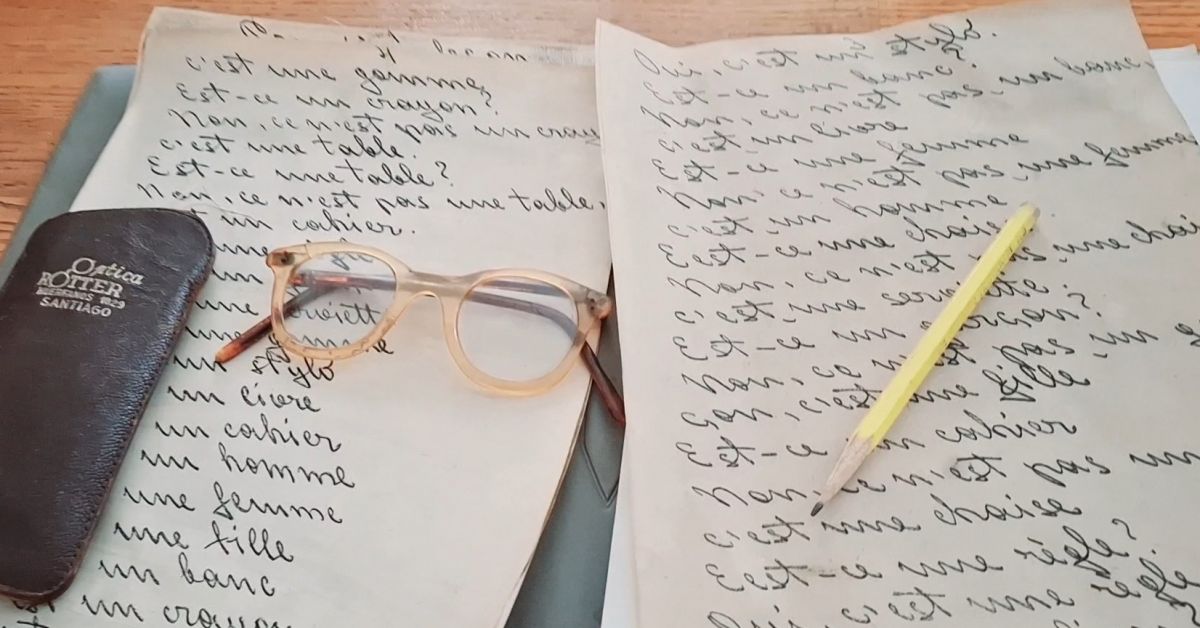 Optica
ROTTER
SANTIAGO
c'est une gomme,
Est-ce un crayon?
Non, ce n'est pas un cray
c'est une table.
Est-ce une table?
Non, ce n'est pas une table.
un cahier.
une
un
une
une
un stylo
un livre
un cahier
un homme
une femme
une fille
un banc
un crayon
Oui, c'est un stylo.
Est-ce un banc?
Non, ce n'est pas un banc,
c'est un livre
Est-ce une femme
Non, ce n'est pas une femme
c'est un homme
Est-ce une chaise
Non, ce n'est pas une chai
c'est une serviette.
Est-ce un garçon?
Non, ce n'est pas un g
çon, c'est une fille
Est-ce un cahier
Non, ce n'est pas un
c'est une chaise
Est-ce une règle?
Oui, c'est une règle